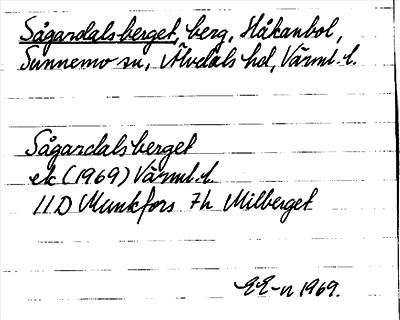 Sågardalsberget, berg, Håkanbol,
Sunnemo sn, Älvdals hd, Värml. l.
Sågardalsberget
ek (1969) Värml. l.
11D Munkfors 7h Milberget
EE-n 1969.